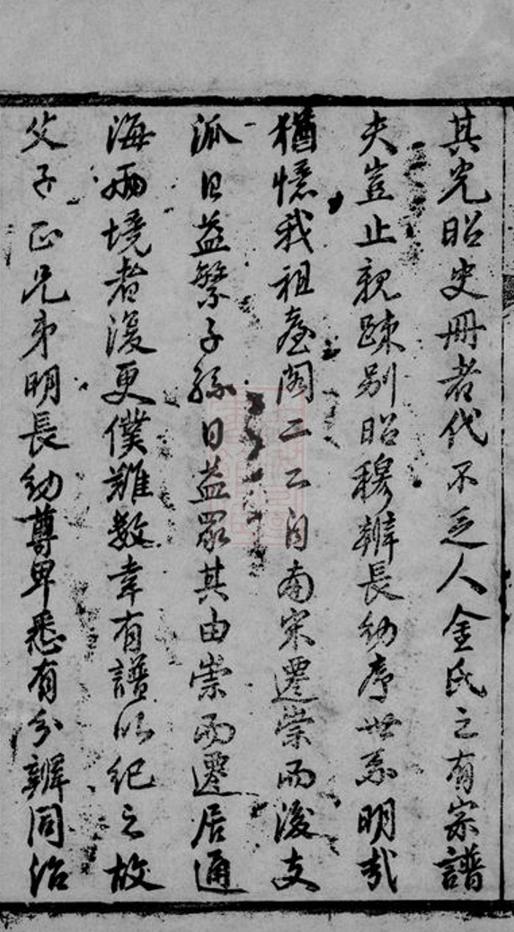 其光昭史冊者代不乏人金氏之有宗譜
夫豈止親疎别昭穆辨長幼序世系明哉
猶憶我祖臺閣二公自南宋遷崇而後支
派日益繁子孫日益眾其由崇而遷居通
海兩境者復更僕難數幸有譜以紀之故
父子正兄弟明長幼尊卑悉有分辨同治